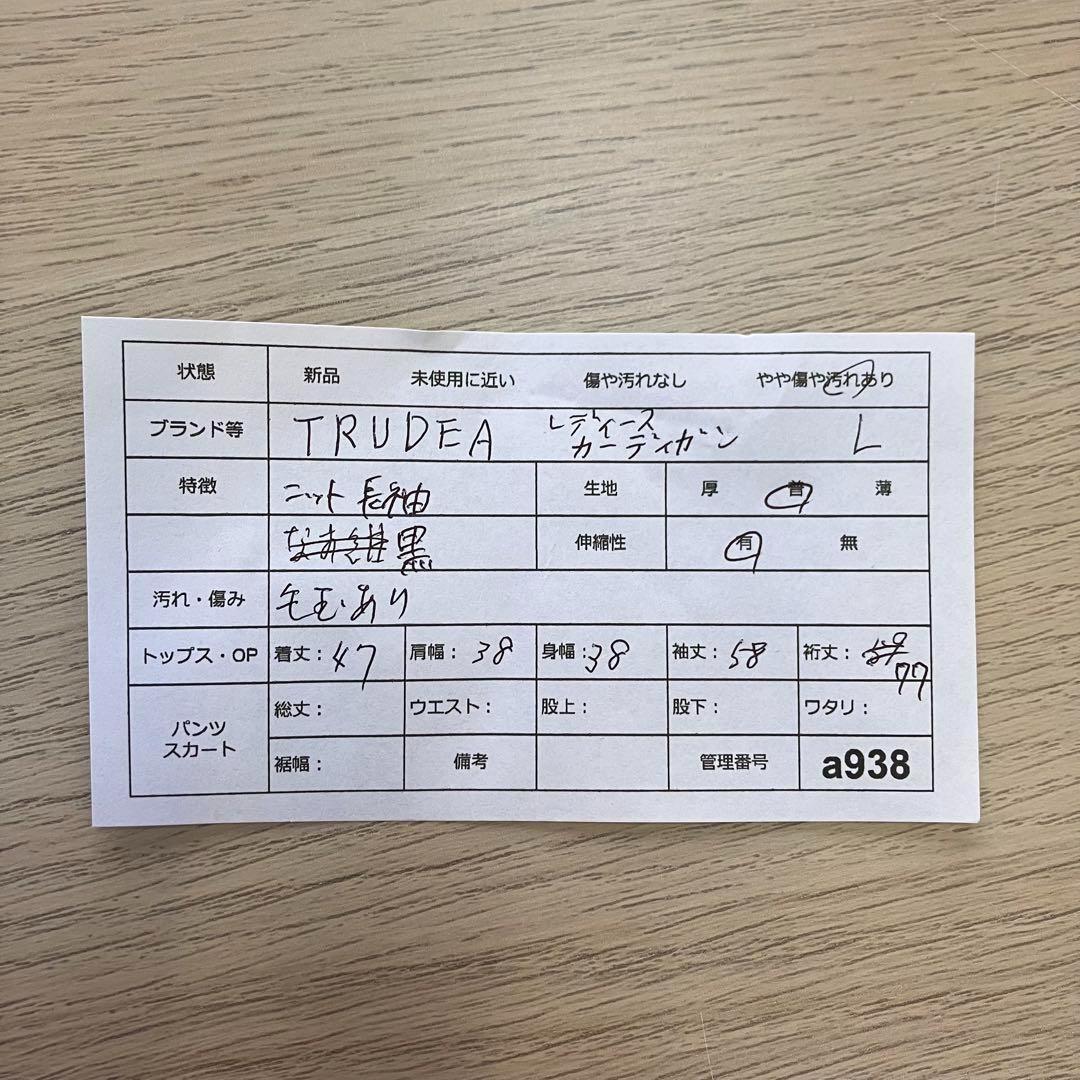 状態 新品 未使用に近い 傷や汚れなし やや傷や汚れあり
ブランド等 TRUDEA レディース カーディガン L
特徴 ニット 長袖 生地 厚 普 薄
黒 伸縮性 有 無
汚れ・傷み 毛玉あり
トップス・OP 着丈：47 肩幅：38 身幅：38 袖丈：58 裄丈：77
パンツ スカート 総丈： ウエスト： 股上： 股下： ワタリ：
裾幅： 備考 管理番号 a938